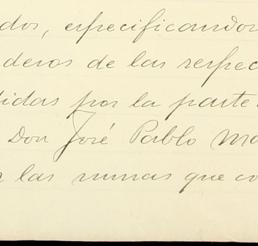 dos, especificandos
deros de las respec
didas por la parte
Don José Pablo Ma
las minas que co